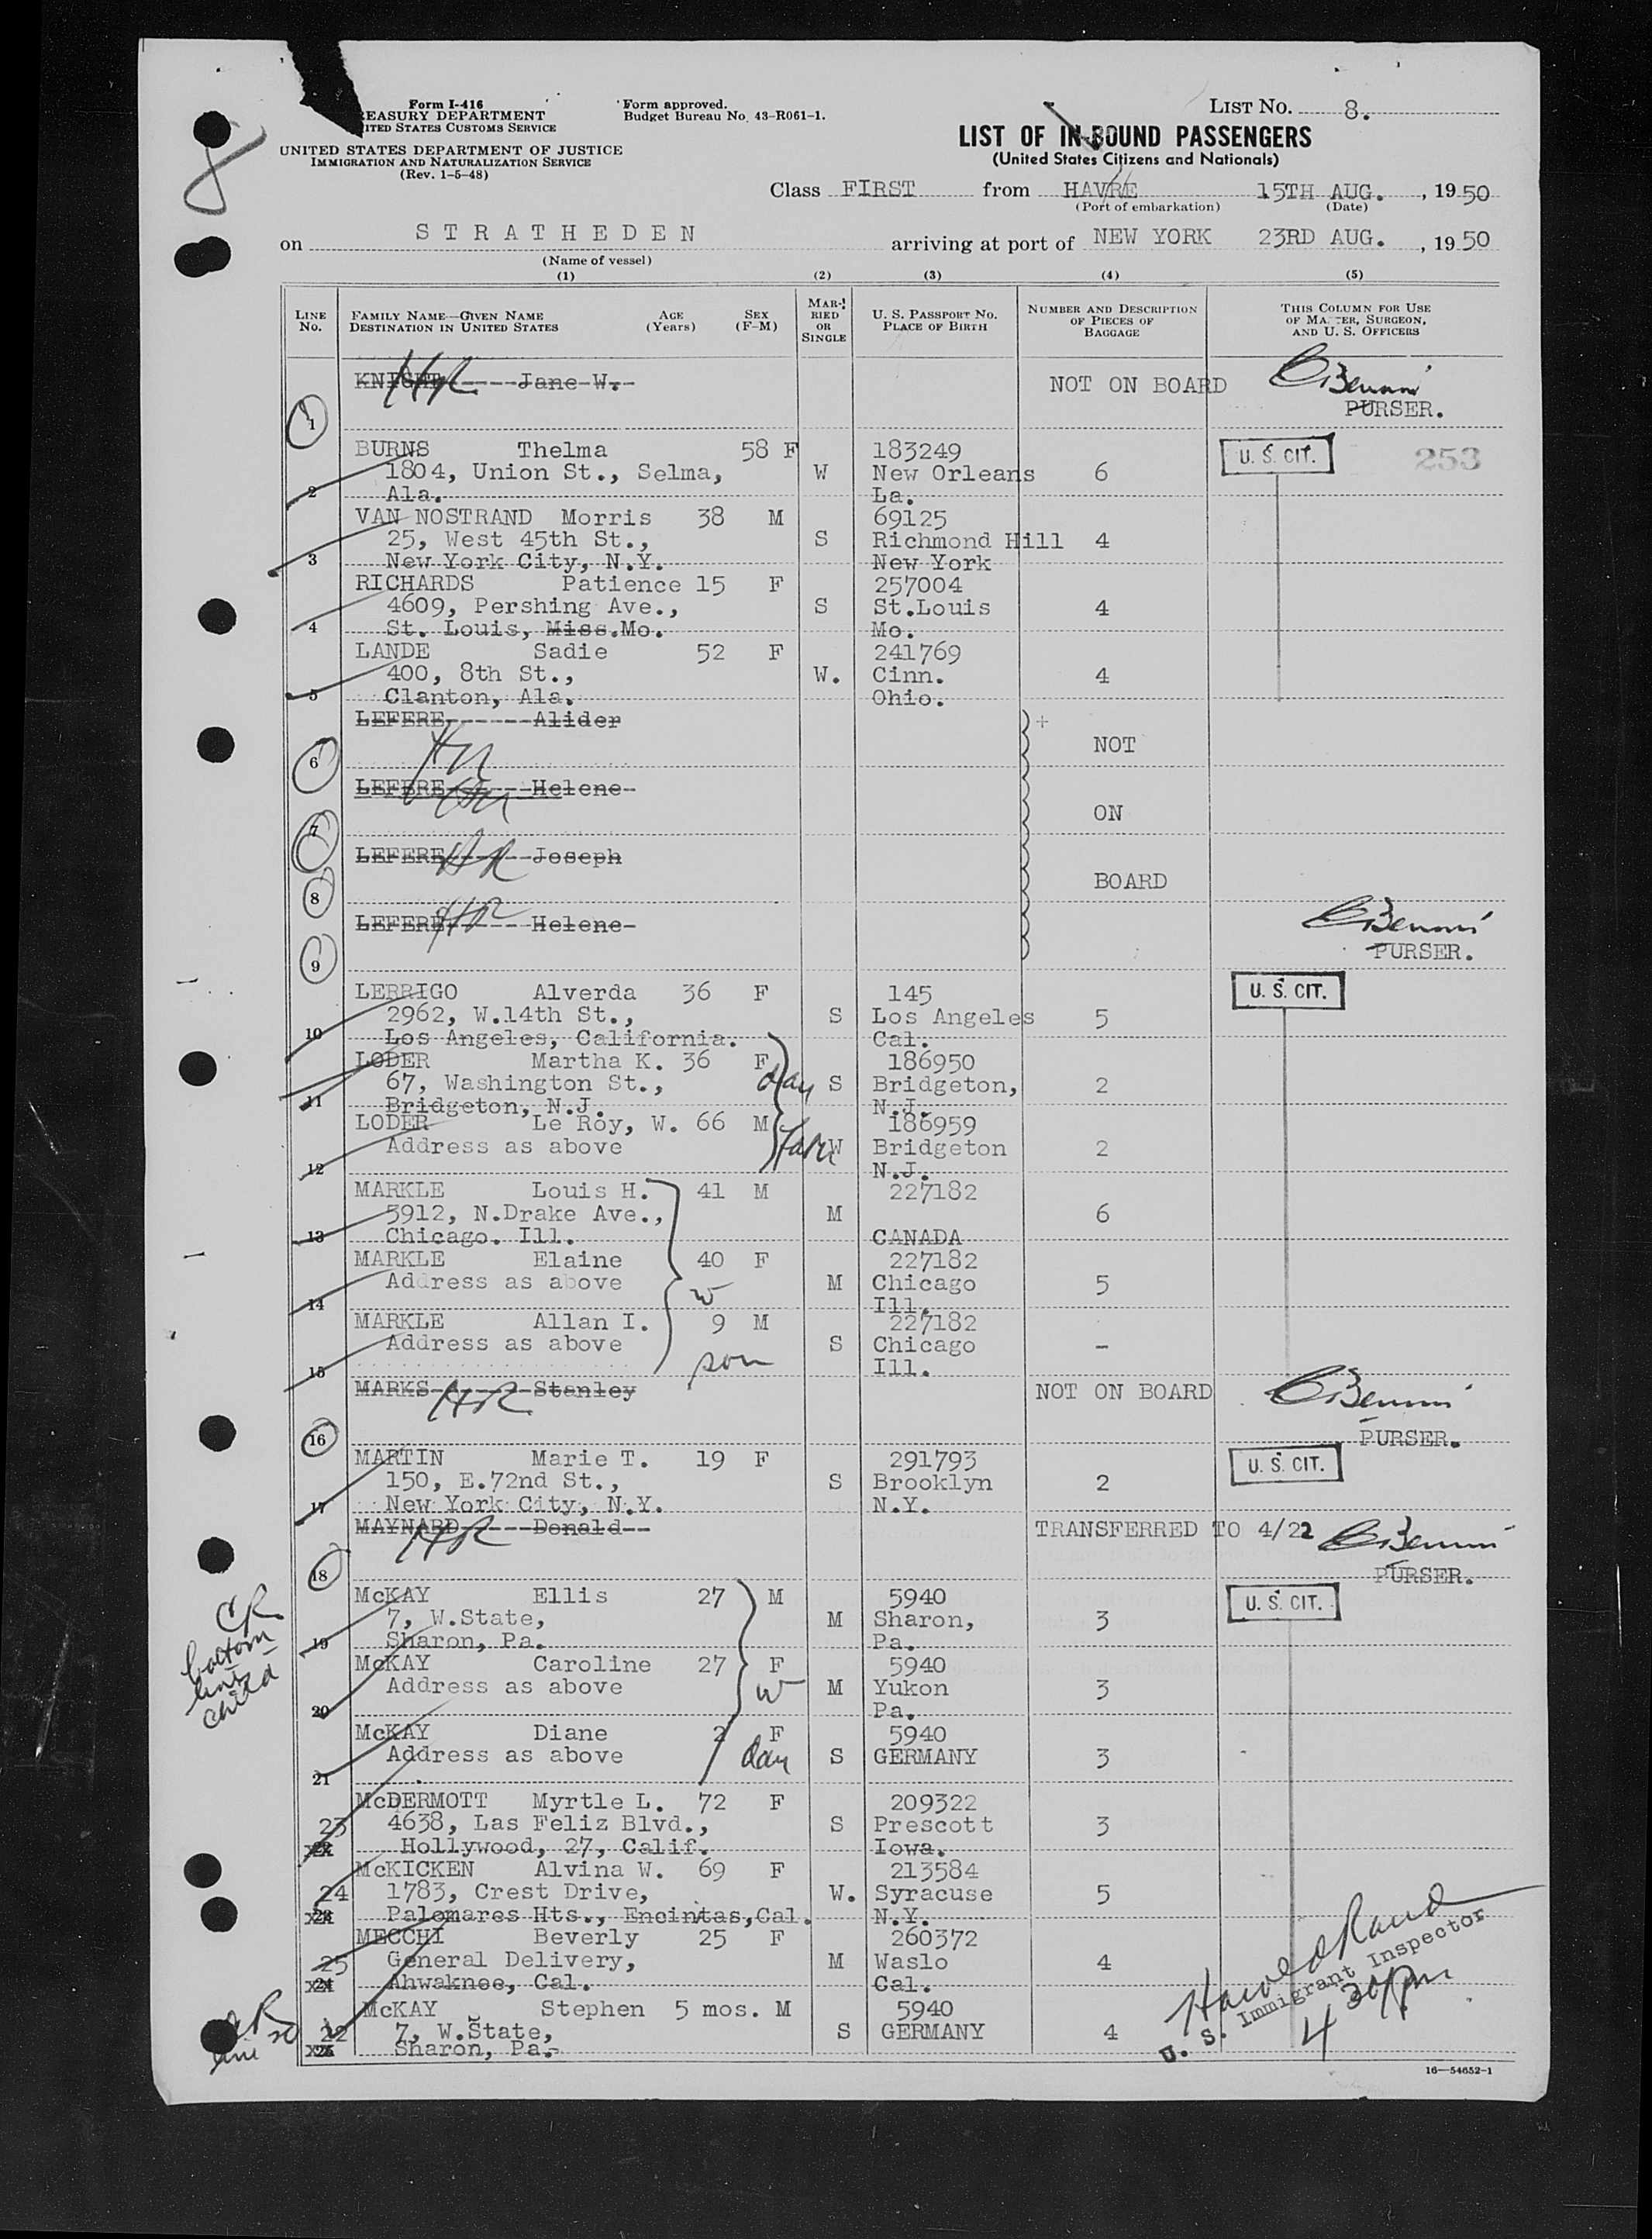 Form I-416
TREASURY DEPARTMENT
UNITED STATES CUSTOMS SERVICE
UNITED STATES DEPARTMENT OF JUSTICE
IMMIGRATION AND NATURALIZATION SERVICE
(Rev. 1-5-48)
Form approved.
Budget Bureau No. 43-R061-1.
LIST No. 8.
8
LIST OF IN-BOUND PASSENGERS
(United States Citizens and Nationals)
Class FIRST from HAVRE 15TH AUG., 1950
(Port of embarkation) (Date)
on STRATHEDEN arriving at port of NEW YORK 23RD AUG., 1950
(Name of vessel)
(1) (2) (3) (4) (5)
LINE No. FAMILY NAME—GIVEN NAME DESTINATION IN UNITED STATES AGE (Years) SEX (F-M) MARRIED OR SINGLE U. S. PASSPORT No. PLACE OF BIRTH NUMBER AND DESCRIPTION OF PIECES OF BAGGAGE THIS COLUMN FOR USE OF MASTER, SURGEON, AND U. S. OFFICERS
KNIGHT Jane W. HR NOT ON BOARD
PURSER.
1
BURNS Thelma 58 F 183249 U. S. CIT. 253
1804, Union St., Selma, W New Orleans 6
2 Ala. La.
VAN NOSTRAND Morris 38 M 69125
25, West 45th St., S Richmond Hill 4
3 New York City, N.Y. New York
RICHARDS Patience 15 F 257004
4609, Pershing Ave., S St.Louis 4
4 St. Louis, Miss.Mo. Mo.
LANDE Sadie 52 F 241769
400, 8th St., W. Cinn. 4
5 Clanton, Ala. Ohio.
LEFERE Alider
6 NOT
LEFERE Helene
7 ON
LEFERE Joseph HR
8 BOARD
LEFERE Helene HR
PURSER.
9
LERRIGO Alverda 36 F 145 U. S. CIT.
2962, W.14th St., S Los Angeles 5
10 Los Angeles, California. Cal.
LODER Martha K. 36 F 186950
67, Washington St., dau S Bridgeton, 2
11 Bridgeton, N.J. N.J.
LODER Le Roy, W. 66 M 186959
Address as above W Bridgeton 2
12 N.J.
MARKLE Louis H. 41 M 227182
5912, N.Drake Ave., M 6
13 Chicago. Ill. CANADA
MARKLE Elaine 40 F 227182
Address as above w M Chicago 5
14 Ill.
MARKLE Allan I. 9 M 227182
Address as above son S Chicago -
15 Ill.
MARKS Stanley HR NOT ON BOARD
16 PURSER.
MARTIN Marie T. 19 F 291793 U. S. CIT.
150, E.72nd St., S Brooklyn 2
17 New York City, N.Y. N.Y.
MAYNARD Donald HR TRANSFERRED TO 4/22
18 PURSER.
McKAY Ellis 27 M 5940 U. S. CIT.
7, W.State, M Sharon, 3
19 Sharon, Pa. Pa.
McKAY Caroline 27 F 5940
Address as above w M Yukon 3
20 Pa.
McKAY Diane 2 F 5940
Address as above dau S GERMANY 3
21
bottom
line
child
McDERMOTT Myrtle L. 72 F 209322
23 4638, Las Feliz Blvd., S Prescott 3
22 Hollywood, 27, Calif. Iowa.
McKICKEN Alvina W. 69 F 213584
24 1783, Crest Drive, W. Syracuse 5
23 Palomares Hts., Encintas,Cal. N.Y.
MECCHI Beverly 25 F 260372
25 General Delivery, M Waslo 4
24 Ahwaknee, Cal. Cal.
McKAY Stephen 5 mos. M 5940
22 7, W.State, S GERMANY 4
25 Sharon, Pa. line 20
U. S. Immigrant Inspector
4 30 pm
16—54652-1